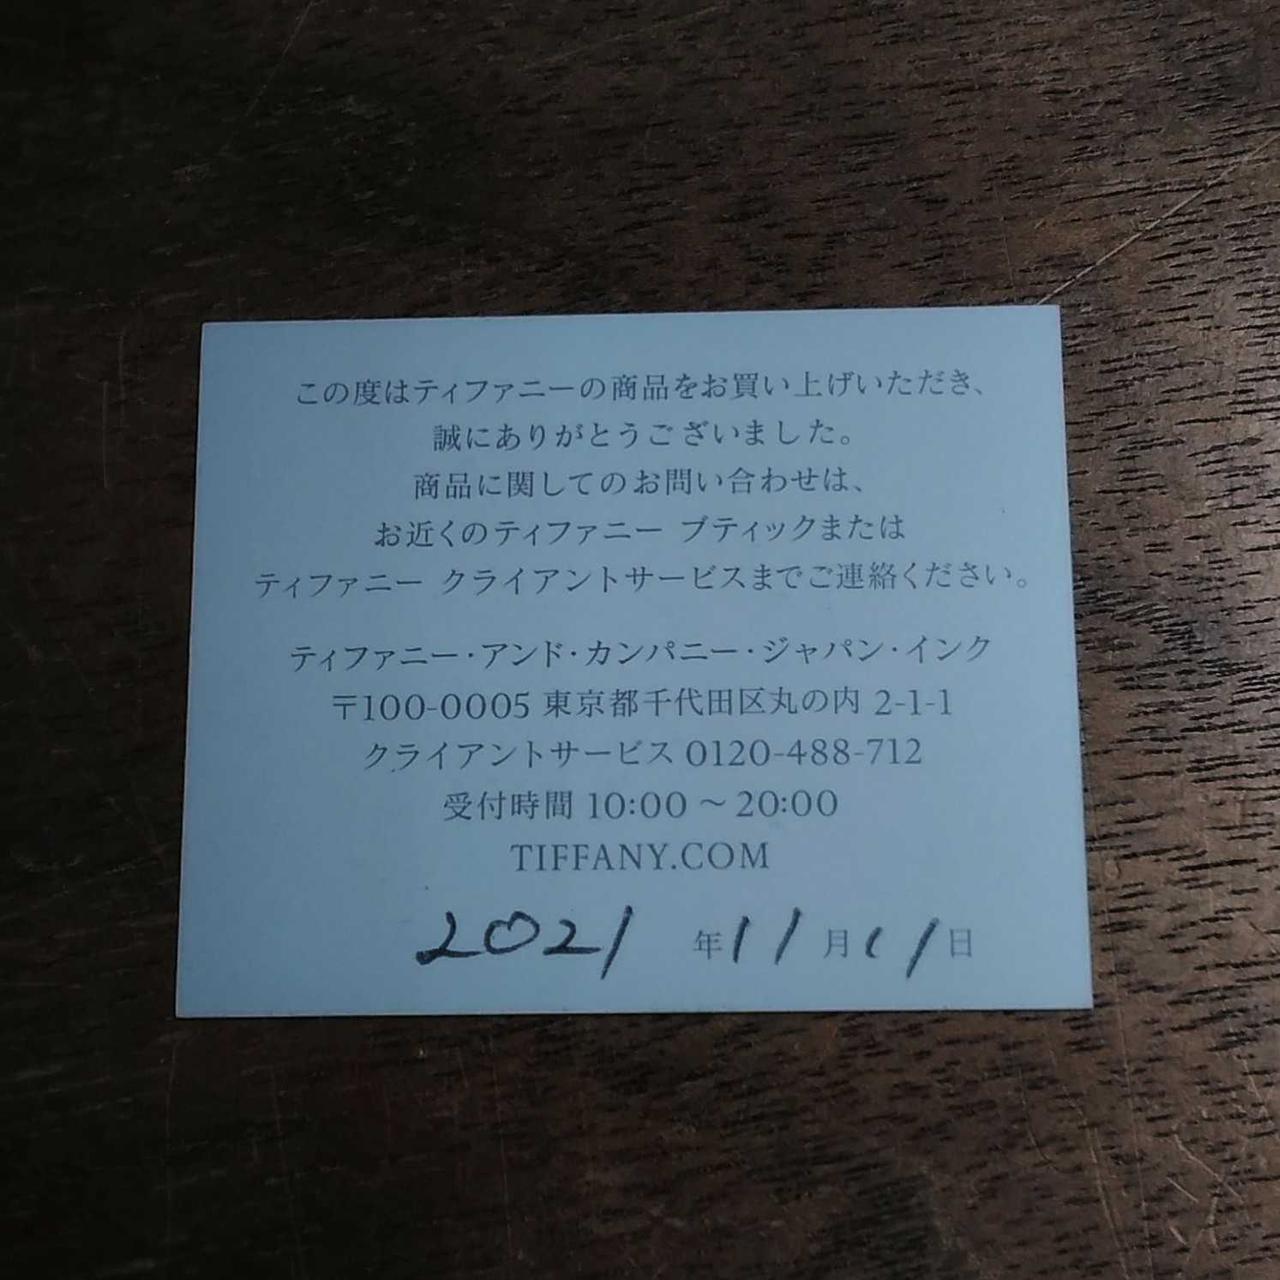 この度はティファニーの商品をお買い上げいただき、
誠にありがとうございました。
商品に関してのお問い合わせは、
お近くのティファニー ブティックまたは
ティファニー クライアントサービスまでご連絡ください。
ティファニー・アンド・カンパニー・ジャパン・インク
〒100-0005 東京都千代田区丸の内 2-1-1
クライアントサービス 0120-488-712
受付時間 10:00 〜 20:00
TIFFANY.COM
2021 年 11 月 11 日